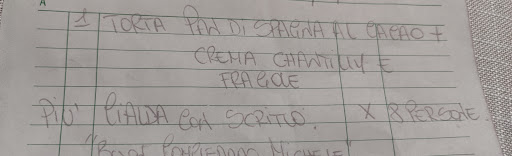 A
1 TORTA PAN DI SPAGNA AL CACAO +
CREMA CHANTILLY E
FRAGOLE
PIU' CIALDA CON SCRITTO. X 8 PERSONE
MICHELE"